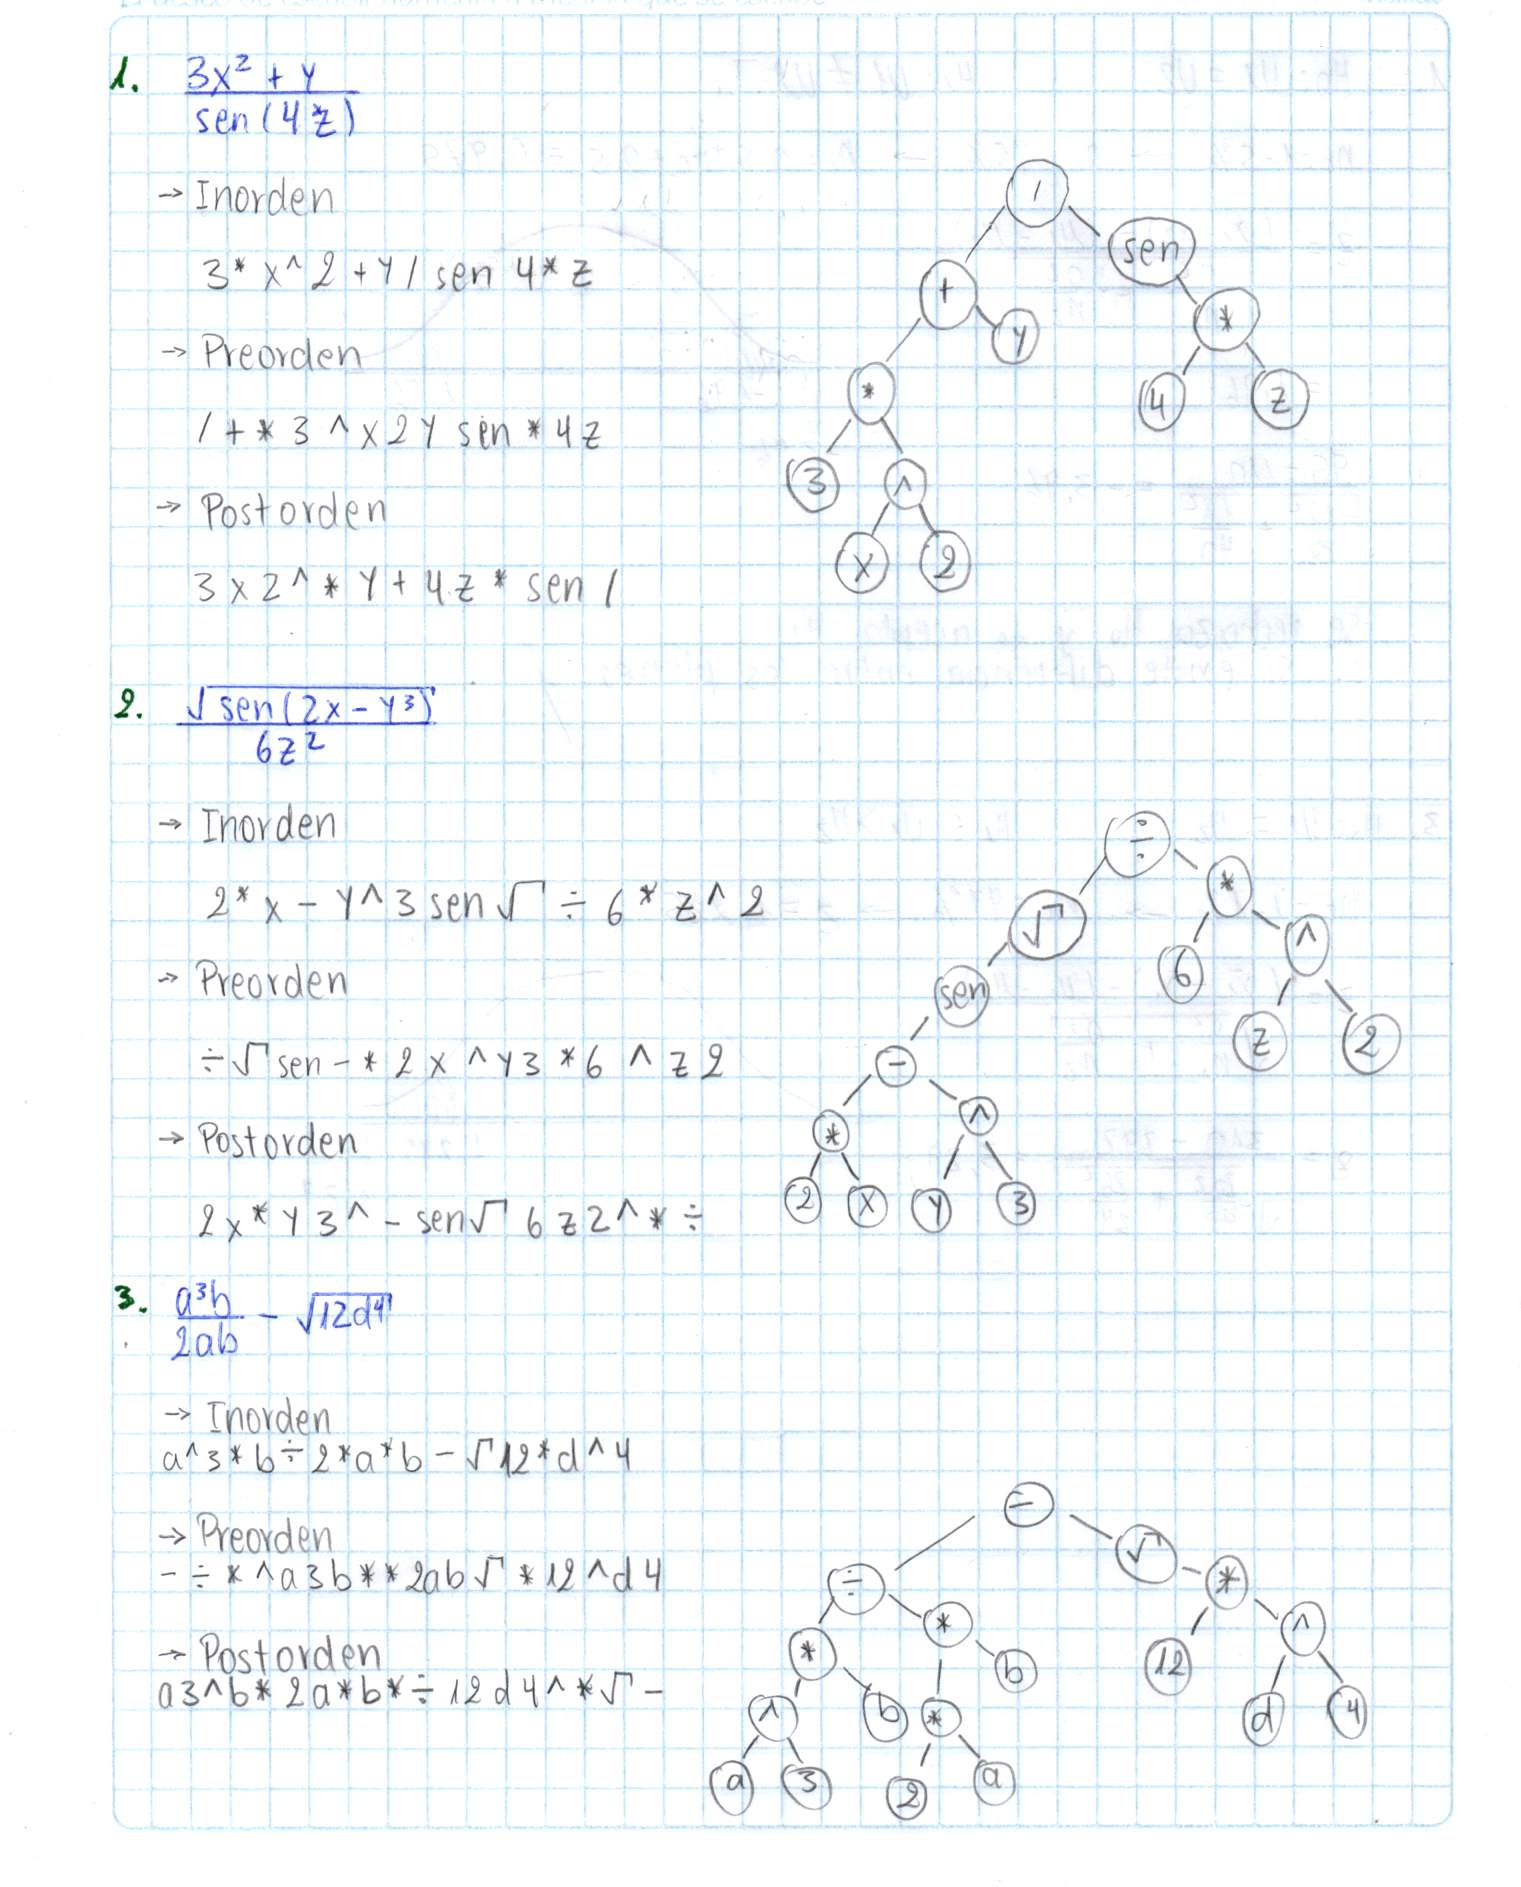 1. 3x² + y
sen(4*z)
→ Inorden
3* x^2 + y / sen 4* z
→ Preorden
/ + * 3 ^ x 2 y sen * 4 z
→ Postorden
3 x 2 ^ * y + 4 z * sen /
/
sen
+
y
*
*
4
z
3
^
x
2
2. √sen(2x - y³)
6z²
→ Inorden
2* x - y ^ 3 sen √ ÷ 6 * z ^ 2
→ Preorden
÷ √ sen - * 2 x ^ y 3 * 6 ^ z 2
→ Postorden
2 x * y 3 ^ - sen √ 6 z 2 ^ * ÷
÷
*
√
6
^
sen
z
2
-
*
^
2
x
y
3
3. a³b
2ab
- √12d⁴
→ Inorden
a^3*b ÷ 2*a*b - √12*d^4
→ Preorden
- ÷ * ^ a 3 b * * 2 a b √ * 12 ^ d 4
→ Postorden
a 3 ^ b * 2 a * b * ÷ 12 d 4 ^ * √ -
-
√
÷
*
*
*
b
12
^
^
b
*
d
4
a
3
2
a